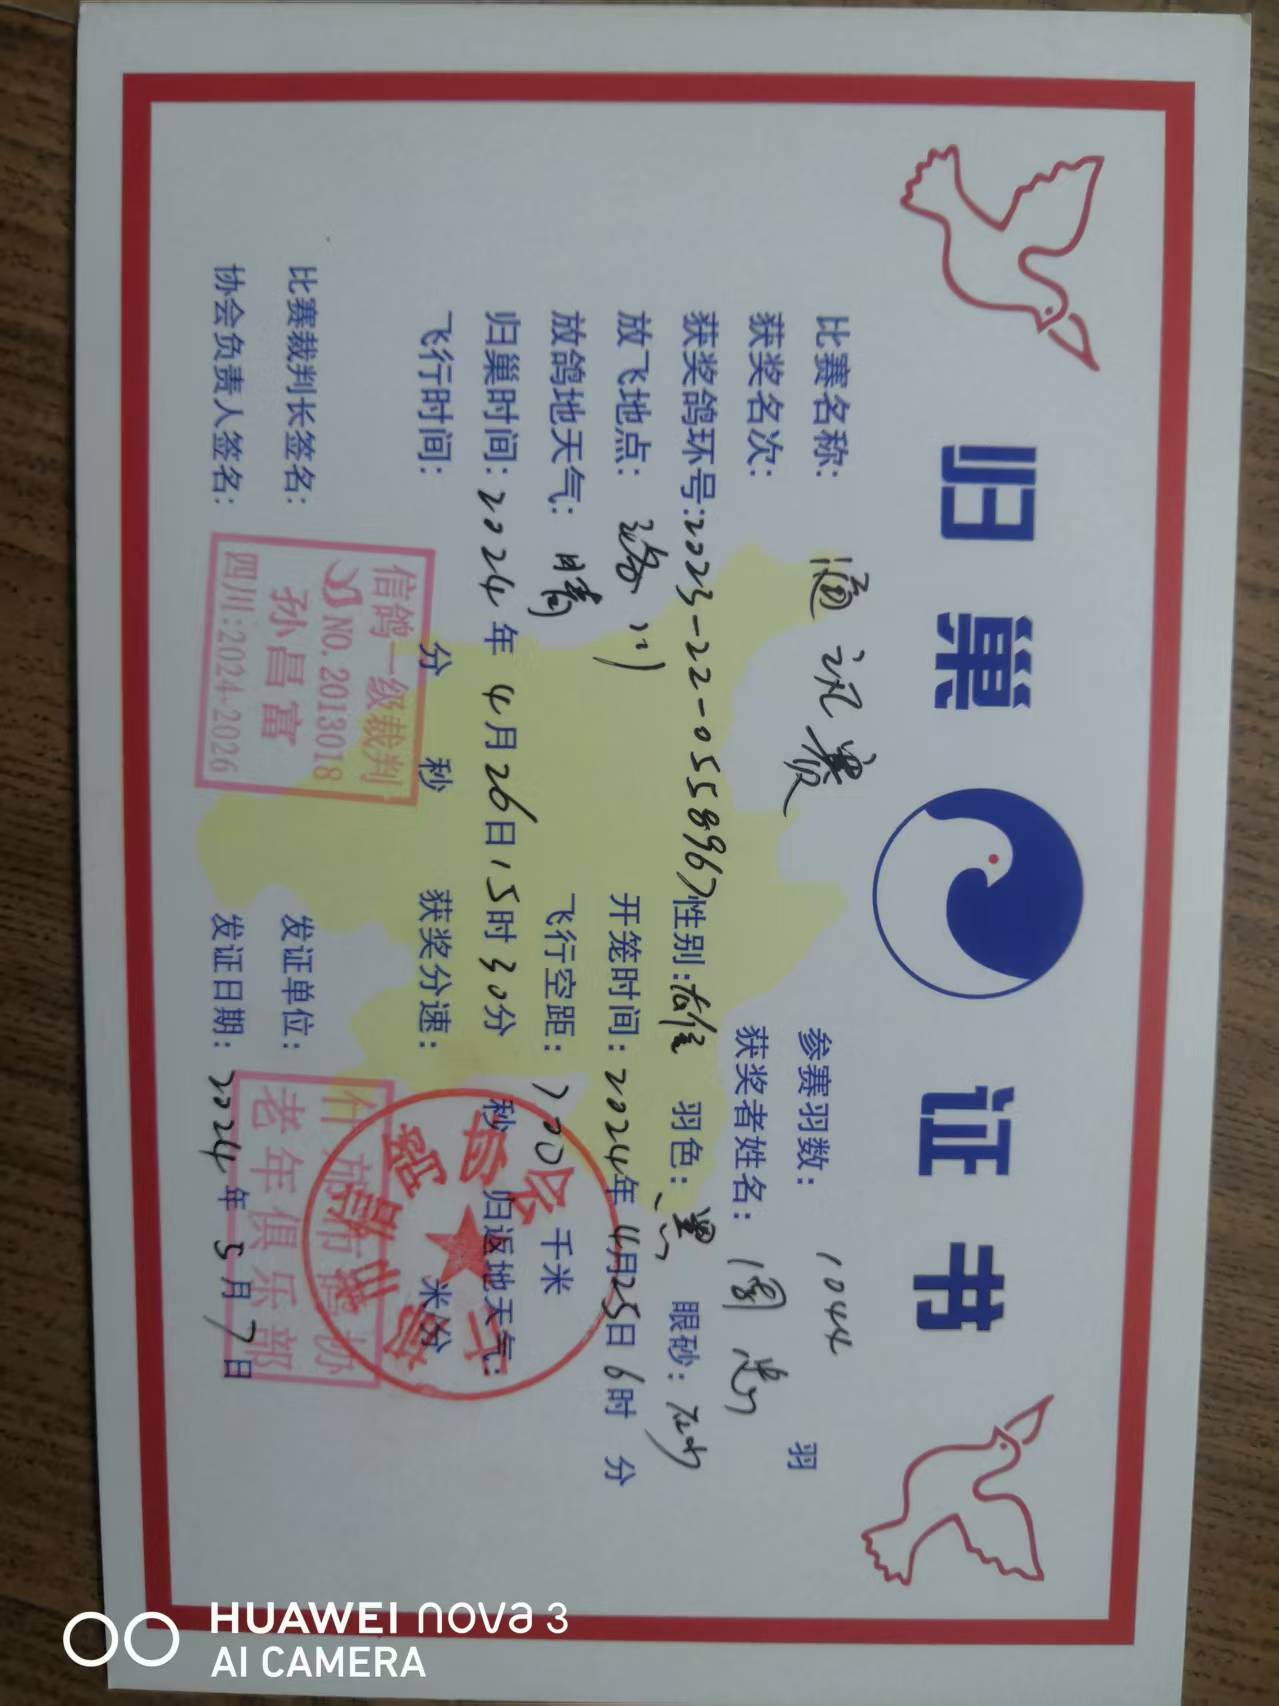 归巢证书
比赛名称：通讯赛 参赛羽数：1044 羽
获奖名次： 获奖者姓名：周忠
获奖鸽环号:2023-22-0558967 性别:雄 羽色：黑 眼砂：砂
放飞地点：潞川 开笼时间：2024年4月25日6时 分
放鸽地天气：晴 飞行空距：700千米
归巢时间：2024年4月26日15时30分 秒 归返地天气：
飞行时间： 分 秒 获奖分速： 米/分
比赛裁判长签名： 发证单位：
协会负责人签名： 发证日期：2024年5月7日
信鸽一级裁判
NO.2013018
孙昌富
四川:2024-2026
什邡市鸽协
老年俱乐部
HUAWEI nova 3
AI CAMERA